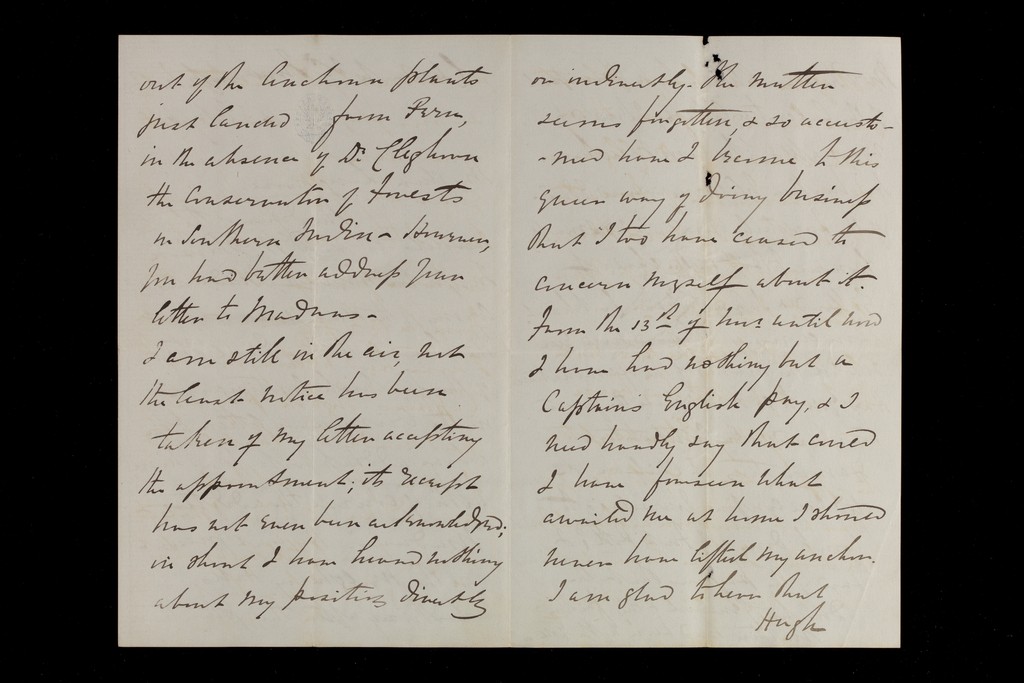 out of the Cinchona plants
just landed from Peru,
in the absence of Dr. Cleghorn
the Conservator of Forests
in Southern India – However,
you had better address your
letter to Madras –
I am still in the air, not
the least notice has been
taken of my letter accepting
the appointment; its receipt
has not even been acknowledged;
in short I have heard nothing
about my position directly
or indirectly. The matter
seems forgotten, & so accusto-
-med have I become to this
queer way of doing business
that I too have ceased to
concern myself about it.
From the 13th of Novr. until now
I have had nothing but a
Captain's English pay, & I
need hardly say that could
I have foreseen what
awaited me at home I should
never have lifted my anchor.
I am glad to hear that
Hugh